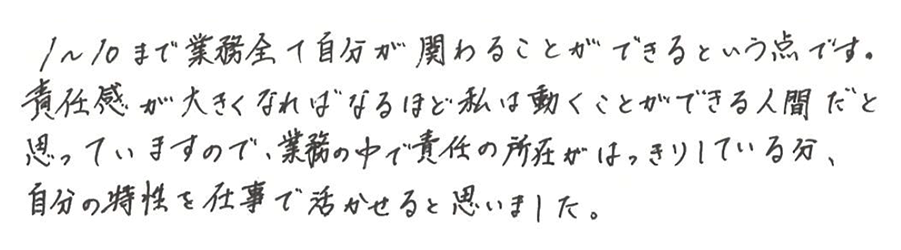 1～10まで業務全て自分が関わることができるという点です。
責任感が大きくなればなるほど私は動くことができる人間だと
思っていますので、業務の中で責任の所在がはっきりしている分、
自分の特性を仕事で活かせると思いました。